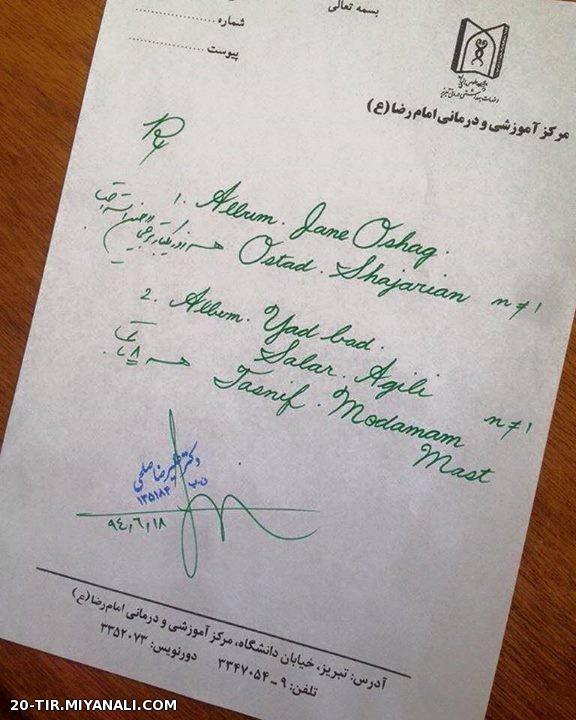 بسمه تعالی
شماره
پیوست
مرکز آموزشی و درمانی امام رضا (ع)
1. Album. Jane Oshag.
Ostad. Shajarian n≠1
هر روز یکبار
2. Album. Yad bad.
Salar. Agili n≠1
Tasnif. Modamam
Mast
هر ۸
دکتر علیرضا صلحی
ن.پ ۱۳۵۱۸۴
۹۴٫۶٫۱۸
آدرس: تبریز، خیابان دانشگاه، مرکز آموزشی و درمانی امام رضا (ع)
تلفن: ۹-۳۳۴۷۰۵۴ دورنویس: ۳۳۵۲۰۷۳
20-TIR.MIYANALI.COM